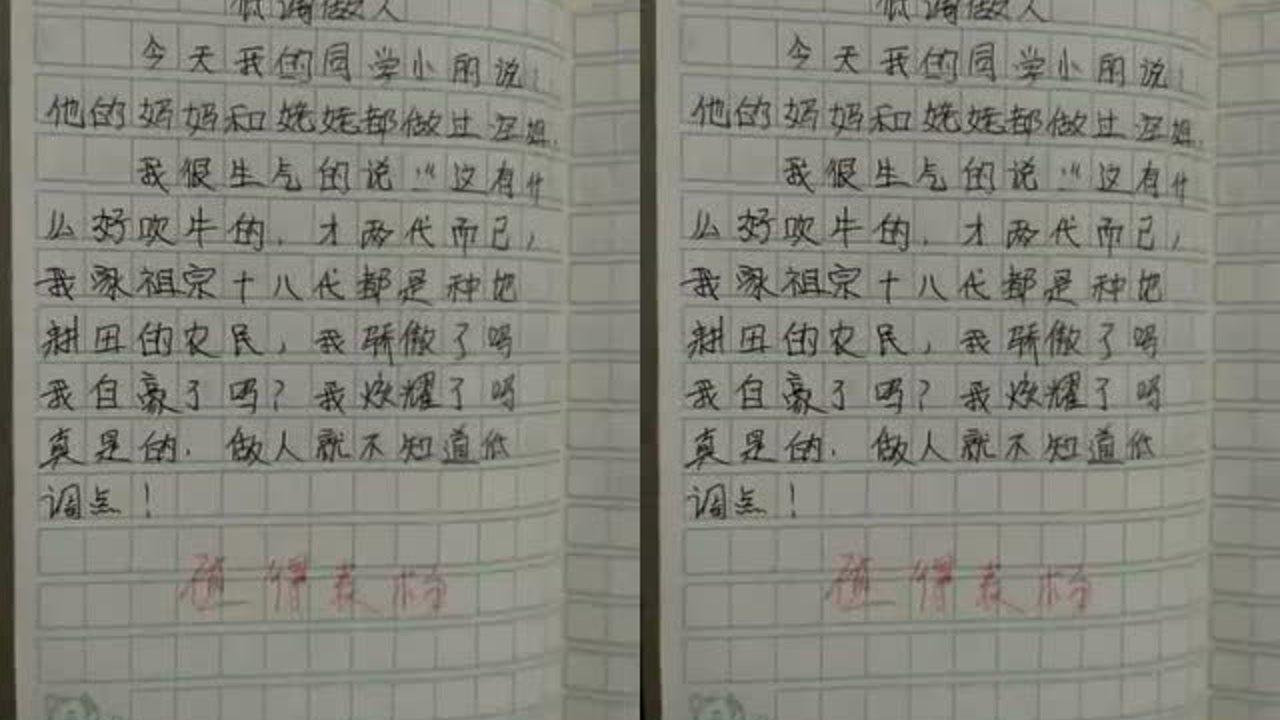 低调做人
今天我的同学小 说:
他的妈妈和姥姥都做过
我很生气的说:"这有什
么好吹牛的.才两代而已,
我家祖宗十八代都是种地
耕田的农民,我骄傲了吗
我自豪了吗?我炫耀了吗
真是的.做人就不知道低
调点!
值得表扬
低调做人
今天我的同学小 说:
他的妈妈和姥姥都做过
我很生气的说:"这有什
么好吹牛的.才两代而已,
我家祖宗十八代都是种地
耕田的农民,我骄傲了吗
我自豪了吗?我炫耀了吗
真是的.做人就不知道低
调点!
值得表扬